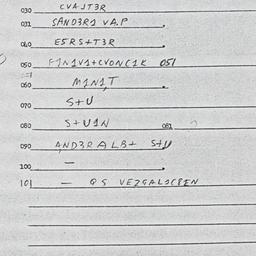 030 CVAJT3R
031 SAND3R1 VA.P
040 E5RS+T3R
050 F1N1V1+CVONC1K 051
060 M1N1,T
070 S+U
080 S+U1N 081
090 AND3RALB+ S+U
100 —
101 — QS VEZGAL1CPEN